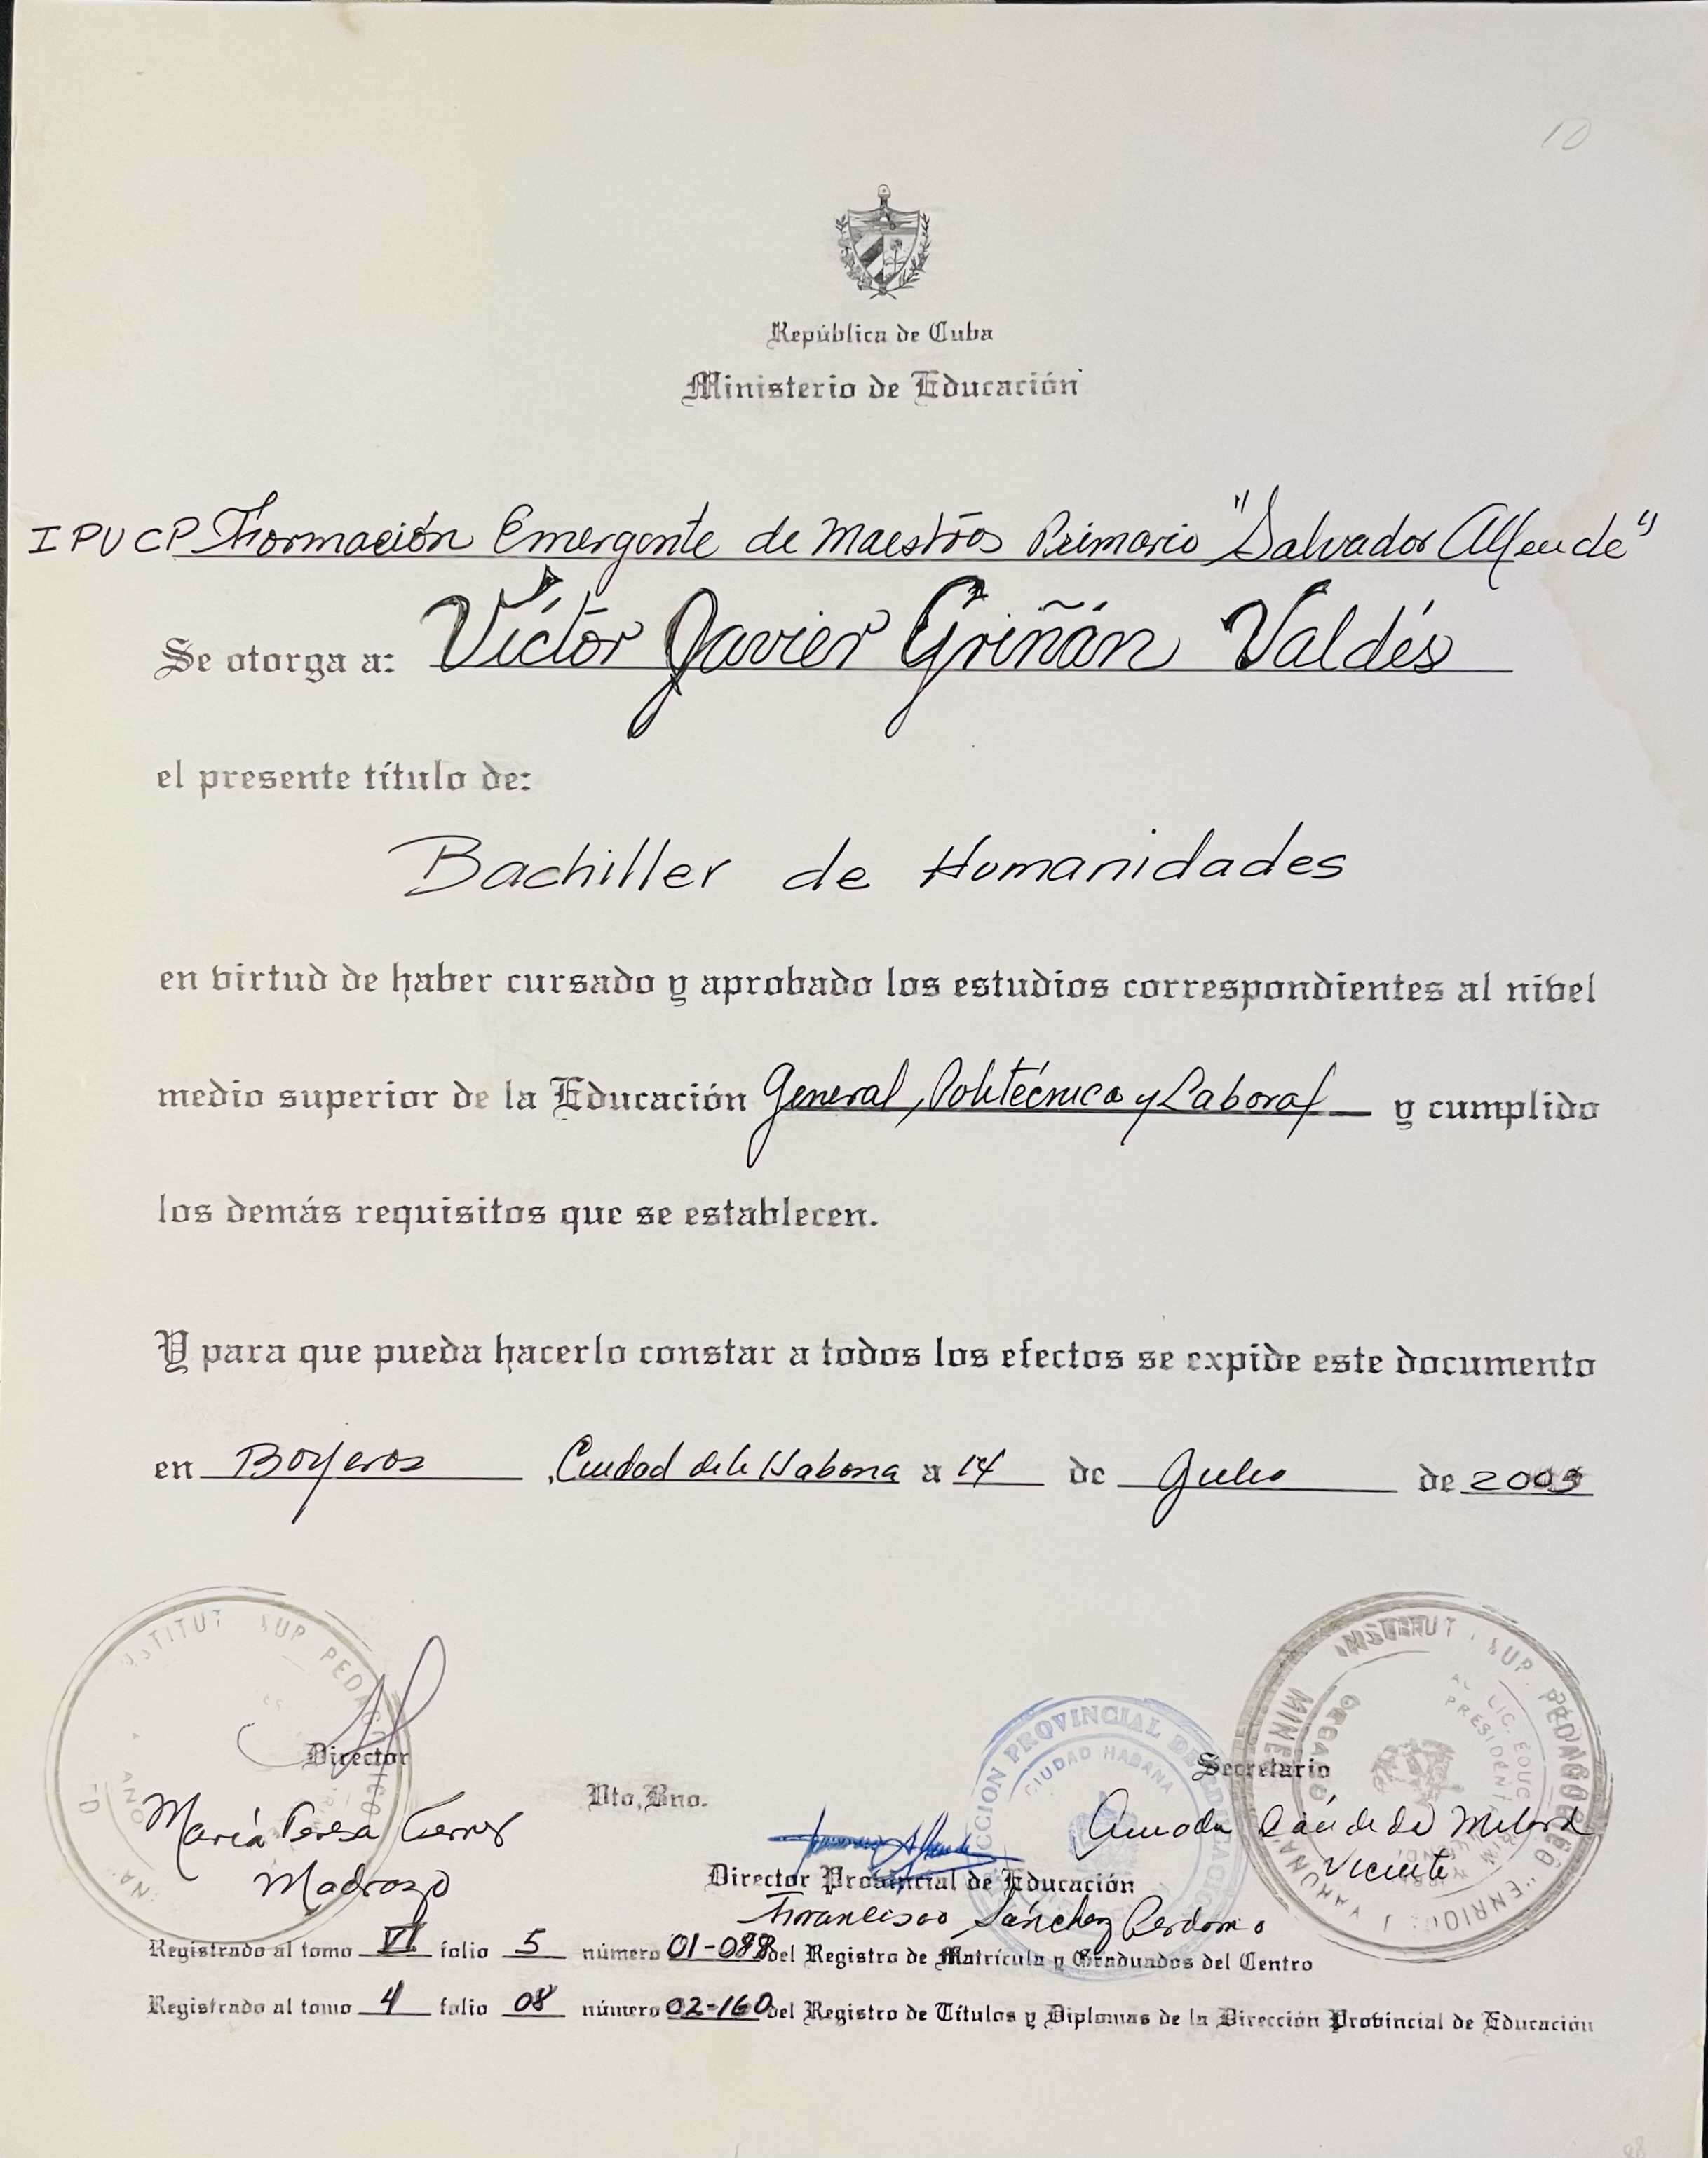 10
República de Cuba
Ministerio de Educación
IPUCP Formación Emergente de Maestros Primario "Salvador Allende"
Se otorga a: Víctor Javier Griñán Valdés
el presente título de:
Bachiller de Humanidades
en virtud de haber cursado y aprobado los estudios correspondientes al nivel
medio superior de la Educación General, Politécnica y Laboral y cumplido
los demás requisitos que se establecen.
Y para que pueda hacerlo constar a todos los efectos se expide este documento
en Boyeros, Ciudad de la Habana a 14 de Julio de 2003
Director
María Teresa
Vto. Bno.
DIRECCION PROVINCIAL DE EDUCACION
CIUDAD HABANA
Secretario
Vicente
Director Provincial de Educación
Francisco Sánchez Perdomo
INSTITUT SUP PEDAGOGICO
INSTITUT. SUP. PEDAGOGICO "ENRIQUE J. VARONA"
MINED
Registrado al tomo VI folio 5 número 01-088 del Registro de Matrícula y Graduados del Centro
Registrado al tomo 4 folio 08 número 02-160 del Registro de Títulos y Diplomas de la Dirección Provincial de Educación